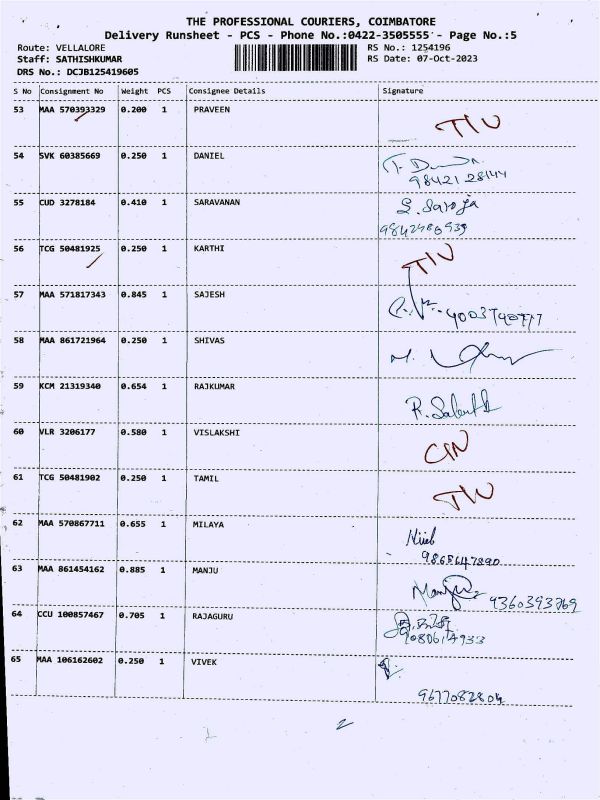 THE PROFESSIONAL COURIERS, COIMBATORE
Delivery Runsheet - PCS - Phone No.:0422-3505555 - Page No.:5
Route: VELLALORE RS No.: 1254196
Staff: SATHISHKUMAR RS Date: 07-Oct-2023
DRS No.: DCJB125419605
S No Consignment No Weight PCS Consignee Details Signature
53 MAA 570393329 0.200 1 PRAVEEN
54 SVK 60385669 0.250 1 DANIEL
98421 28144
55 CUD 3278184 0.410 1 SARAVANAN S. Saroja
56 TCG 50481925 0.250 1 KARTHI
57 MAA 571817343 0.845 1 SAJESH
58 MAA 861721964 0.250 1 SHIVAS
59 KCM 21319340 0.654 1 RAJKUMAR
60 VLR 3206177 0.580 1 VISLAKSHI
61 TCG 50481902 0.250 1 TAMIL
62 MAA 570867711 0.655 1 MILAYA
9865647890
63 MAA 861454162 0.885 1 MANJU Manju
9360393769
64 CCU 100857467 0.705 1 RAJAGURU
65 MAA 106162602 0.250 1 VIVEK
9677082804
2